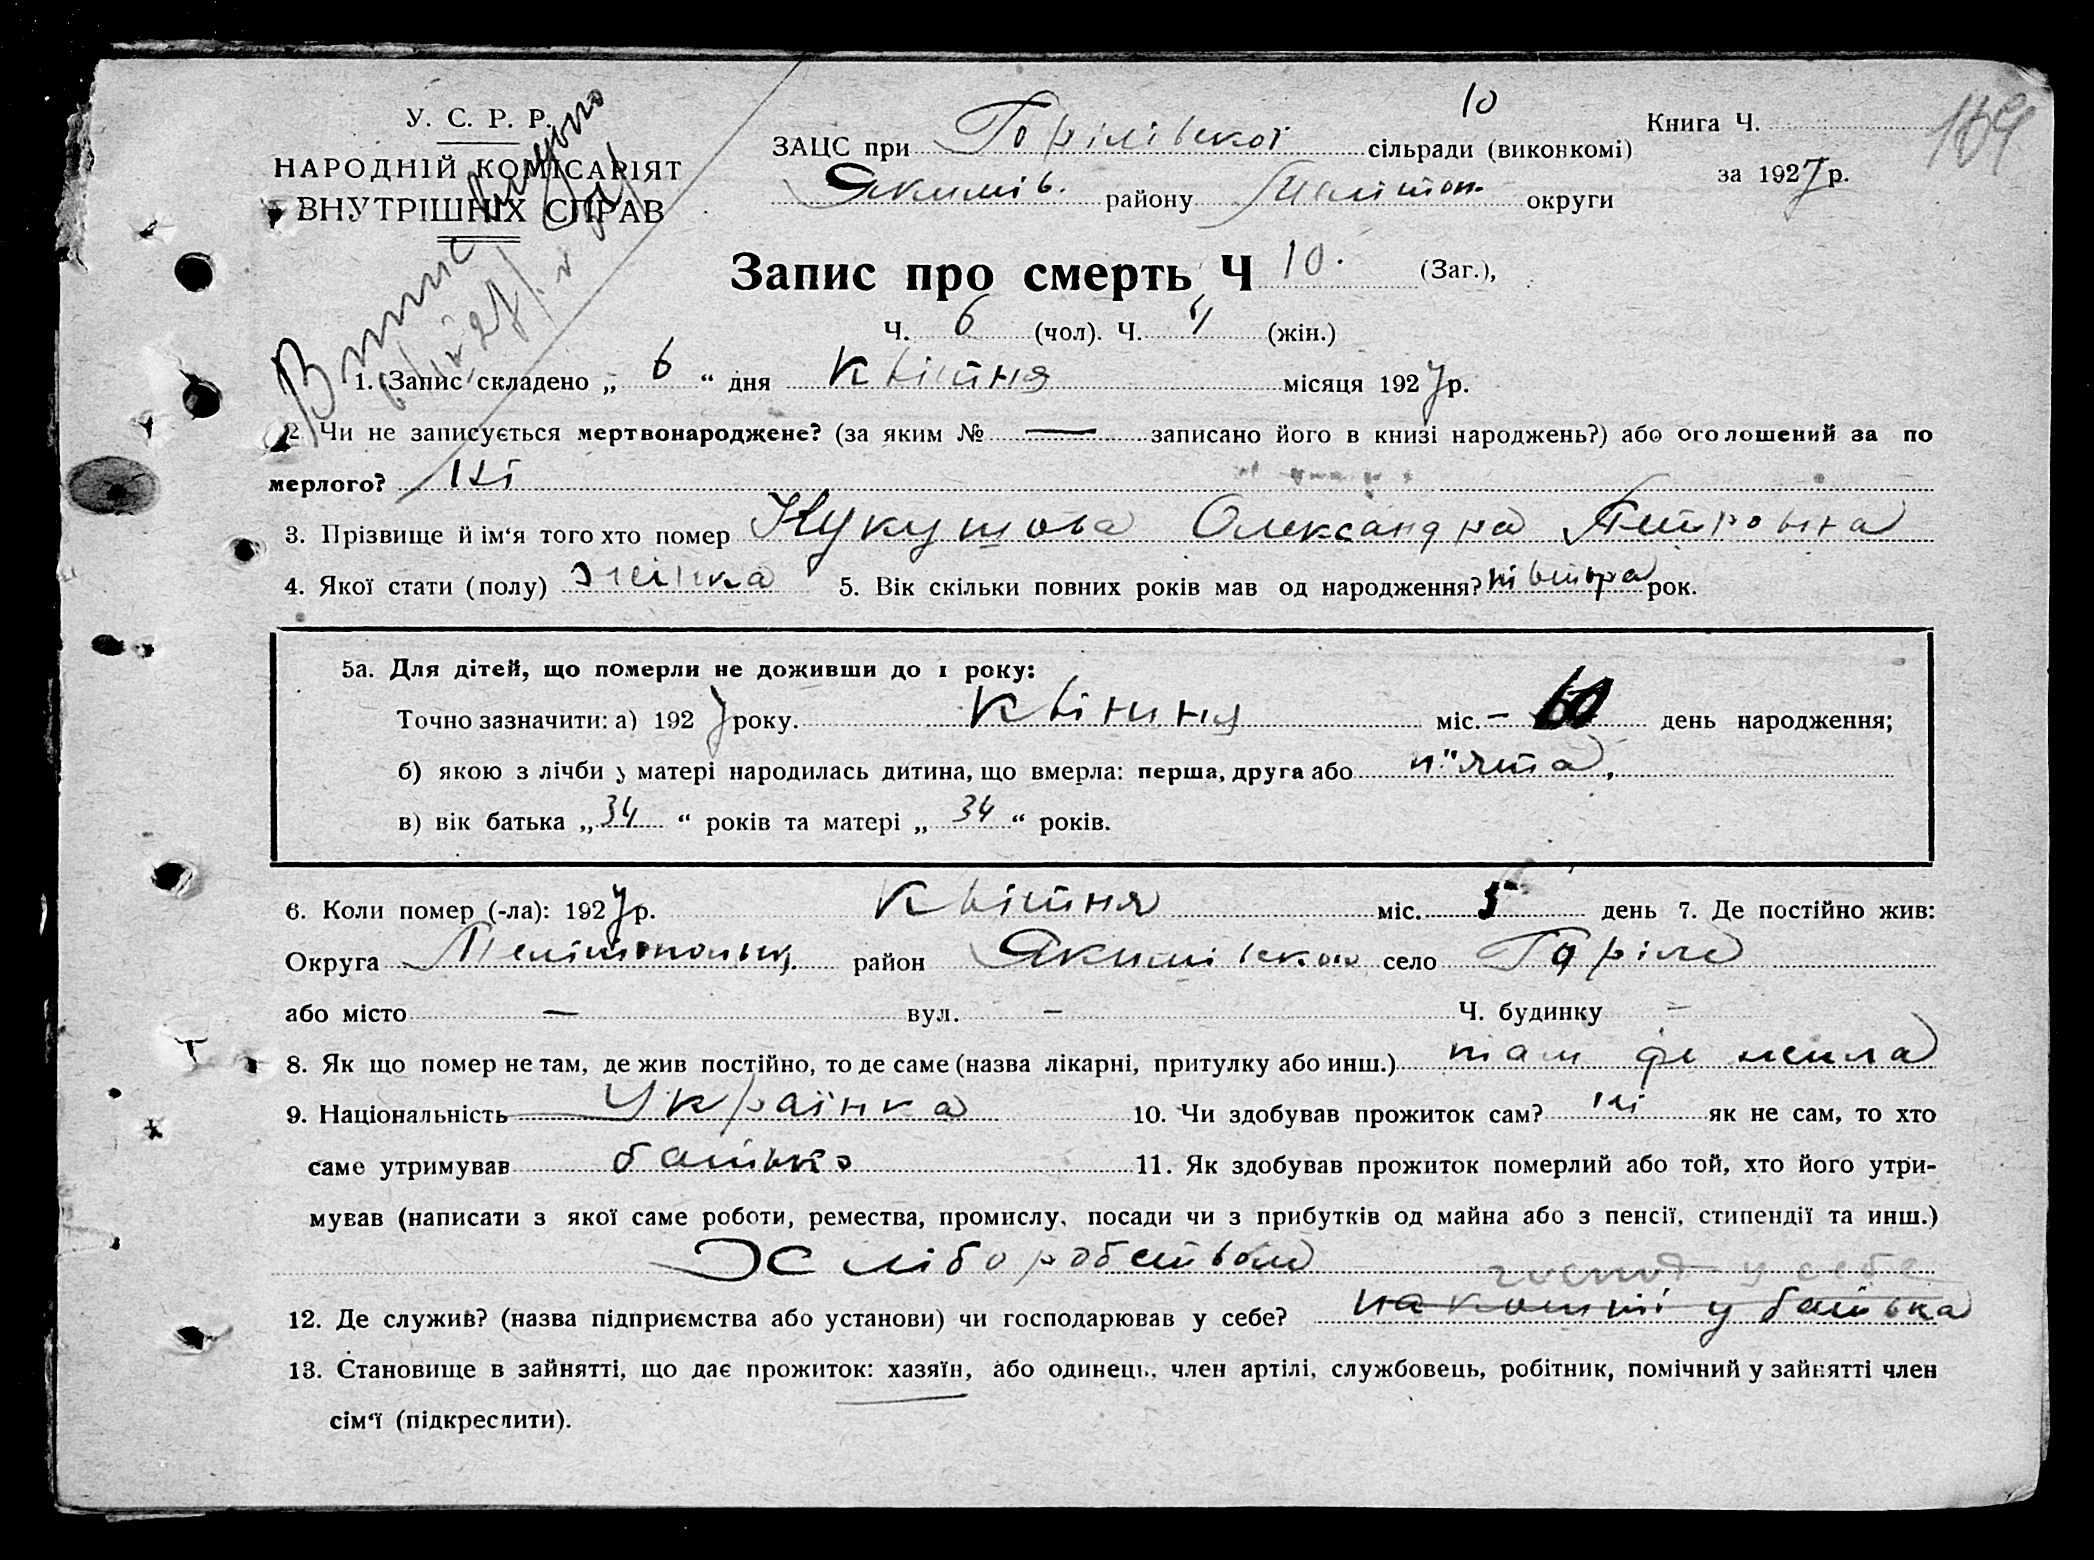 У. С. Р. Р.
НАРОДНІЙ КОМІСАРІЯТ
ВНУТРІШНІХ СПРАВ
10
ЗАЦС при Горілівської сільради (виконкомі)
Якимів. району Меліт. округи
Книга Ч. 109
за 1927 р.
Запис про смерть Ч 10. (Заг.),
Ч. 6 (чол). Ч. 4 (жін.)
1. Запис складено „ 6 “ дня Квітня місяця 1927 р.
2. Чи не записується мертвонароджене? (за яким № — записано його в книзі народжень?) або оголошений за по
мерлого? Ні
3. Прізвище й ім‘я того хто помер Кукушова Олександра Петровна
4. Якої стати (полу) жінка 5. Вік скільки повних років мав од народження? рок.
5а. Для дітей, що померли не доживши до 1 року:
Точно зазначити: а) 1927 року. Квітня міс. — день народження;
б) якою з лічби у матері народилась дитина, що вмерла: перша, друга або п"ята,
в) вік батька „ 34 “ років та матері „ 34 “ років.
6. Коли помер (-ла): 1927 р. Квітня міс. 5 день 7. Де постійно жив:
Округа район село Горіле
або місто — вул. — Ч. будинку —
8. Як що помер не там, де жив постійно, то де саме (назва лікарні, притулку або инш.) там де жила
9. Національність Українка 10. Чи здобував прожиток сам? ні як не сам, то хто
саме утримував батько 11. Як здобував прожиток померлий або той, хто його утри-
мував (написати з якої саме роботи, ремества, промислу, посади чи з прибутків од майна або з пенсії, стипендії та инш.)
Хліборобством
господ у себе
12. Де служив? (назва підприємства або установи) чи господарював у себе? на кошті у батька
13. Становище в зайнятті, що дає прожиток: хазяїн, або одинець, член артілі, службовець, робітник, помічний у зайнятті член
сім‘ї (підкреслити).